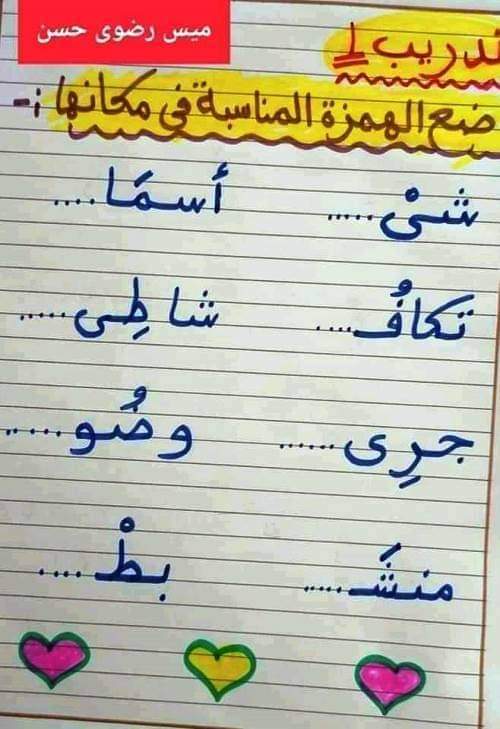 ميس رضوى حسن
تدريب 1
ضع الهمزة المناسبة في مكانها :-
شىْ..... أسمَا....
تكافُ.... شاطِى.....
جرِى...... وضُو.....
منشَـ..... بطْ....